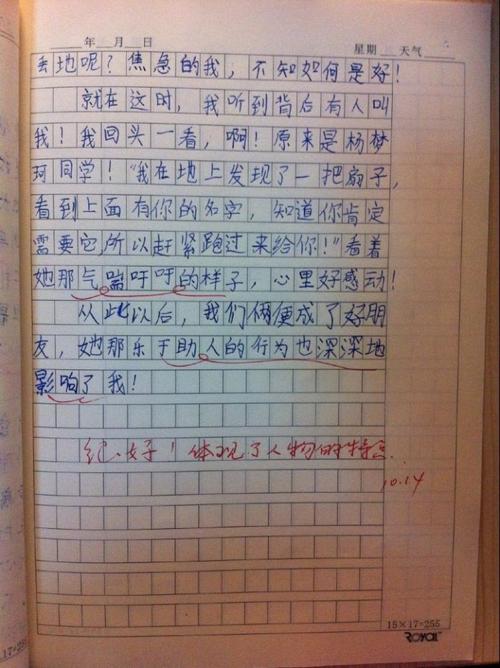 年 月 日
星期 天气
丢地呢？焦急的我，不知如何是好！
就在这时，我听到背后有人叫
我！我回头一看，啊！原来是杨梦
珂同学！“我在地上发现了一把扇子，
看到上面有你的名字，知道你肯定
需要它，所以赶紧跑过来给你！”看着
她那气喘吁吁的样子，心里好感动！
从此以后，我们俩便成了好朋
友，她那乐于助人的行为也深深地
影响了我！
好！体现了人物的特点
10.14
15×17=255
ROYAL